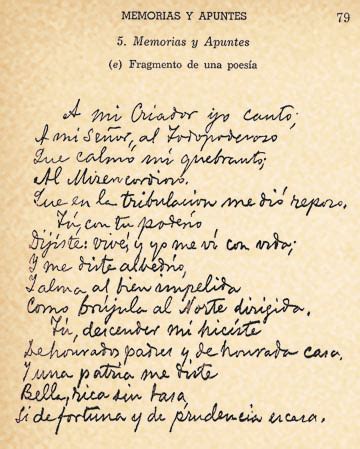 MEMORIAS Y APUNTES 79
5. Memorias y Apuntes
(e) Fragmento de una poesía
A mi Criador yo canto;
A mi Señor, al Todopoderoso
Que calmó mi quebranto;
Al Misericordioso.
Que en la tribulacion me dió reposo.
Tú, con tu poderío
Dijiste: vive; y yo me ví con vida;
Y me diste albedrío,
Y alma al bien impelida
Como brújula al Norte dirigida.
Tú, descender me hiciste
De honrados padres y de honrada casa.
Y una patria me diste
Bella, rica sin tasa,
Si de fortuna y de prudencia escasa.